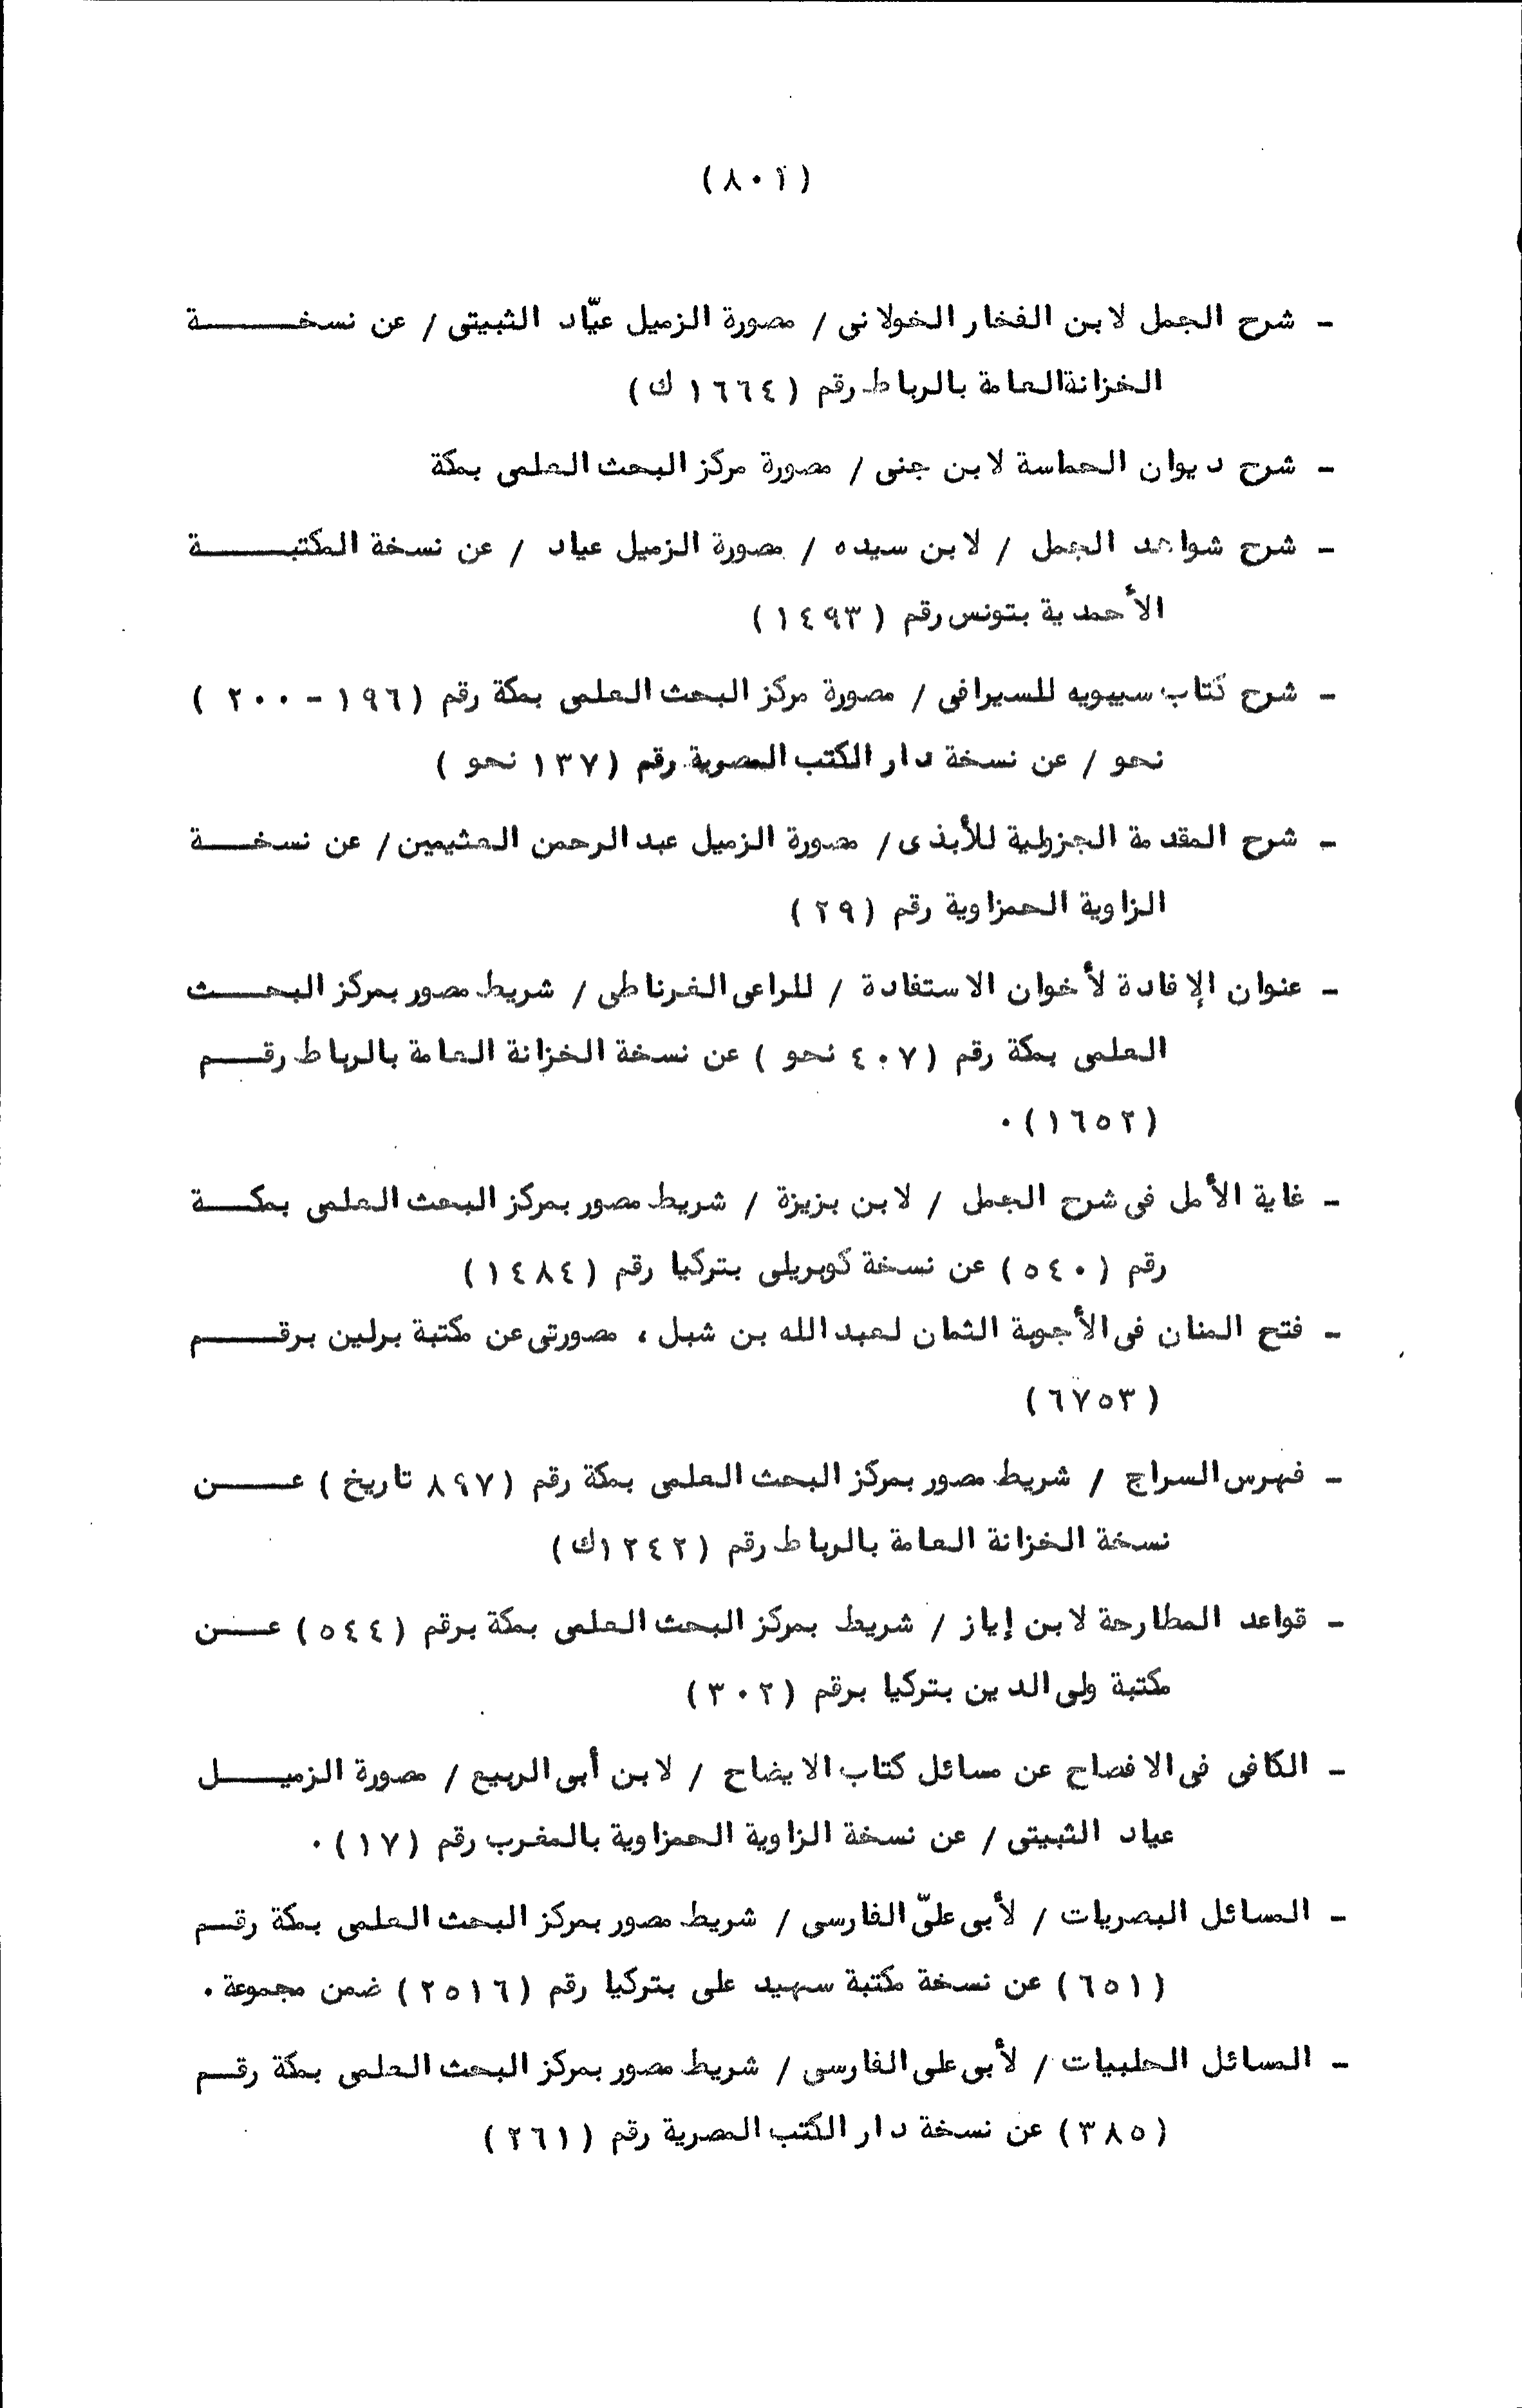 (٨٠٢)
- شرح الجمل لابن الفخار الخولانى / مصورة الزميل عيّاد الثبيتى / عن نسخة
الخزانة العامة بالرباط رقم (١٦٦٤ ك)
- شرح ديوان الحماسة لابن جنى / مصورة مركز البحث العلمى بمكة
- شرح شواهد الجمل / لابن سيده / مصورة الزميل عياد / عن نسخة المكتبة
الأحمدية بتونس رقم (١٤٩٣)
- شرح كتاب سيبويه للسيرافى / مصورة مركز البحث العلمى بمكة رقم (١٩٦ - ٢٠٠)
نحو / عن نسخة دار الكتب المصرية رقم (١٣٧ نحو)
- شرح المقدمة الجزولية للأبذى / مصورة الزميل عبد الرحمن العثيمين / عن نسخة
الزاوية الحمزاوية رقم (٢٩)
- عنوان الإفادة لأخوان الاستفادة / للراعى الغرناطى / شريط مصور بمركز البحث
العلمى بمكة رقم (٤٠٧ نحو) عن نسخة الخزانة العامة بالرباط رقم
(١٦٥٢).
- غاية الأمل فى شرح الجمل / لابن بزيزة / شريط مصور بمركز البحث العلمى بمكة
رقم (٥٤٠) عن نسخة كوبريلى بتركيا رقم (١٤٨٤)
- فتح المنان فى الأجوبة الثمان لعبد الله بن شبل ، مصورتى عن مكتبة برلين برقم
(٦٧٥٣)
- فهرس السراج / شريط مصور بمركز البحث العلمى بمكة رقم (٨٩٧ تاريخ) عن
نسخة الخزانة العامة بالرباط رقم (١٢٤٢ك)
- قواعد المطارحة لابن إياز / شريط بمركز البحث العلمى بمكة برقم (٥٤٤) عن
مكتبة ولى الدين بتركيا برقم (٣٠٢)
- الكافى فى الافصاح عن مسائل كتاب الايضاح / لابن أبى الربيع / مصورة الزميل
عياد الثبيتى / عن نسخة الزاوية الحمزاوية بالمغرب رقم (١٧).
- المسائل البصريات / لأبى علىّ الفارسى / شريط مصور بمركز البحث العلمى بمكة رقم
(٦٥١) عن نسخة مكتبة سهيد على بتركيا رقم (٢٥١٦) ضمن مجموعة .
- المسائل الحلبيات / لأبى على الفارسى / شريط مصور بمركز البحث العلمى بمكة رقم
(٣٨٥) عن نسخة دار الكتب المصرية رقم (٢٦١)